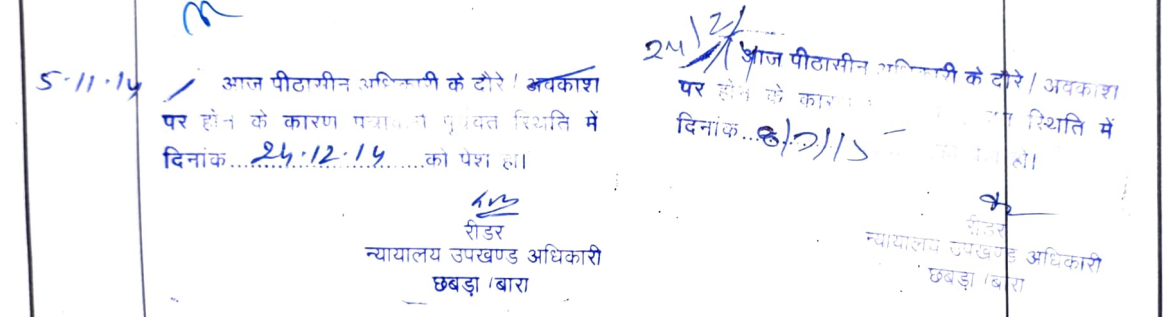 5.11.14 आज पीठासीन अधिकारी के दौरे / अवकाश
पर होने के कारण पत्रावली पूर्ववत स्थिति में
दिनांक....24.12.14....को पेश हो।
रीडर
न्यायालय उपखण्ड अधिकारी
छबड़ा /बारा
24/12/ आज पीठासीन अधिकारी के दौरे / अवकाश
पर होने के कारण स्थिति में
दिनांक... हो।
रीडर
न्यायालय उपखण्ड अधिकारी
छबड़ा /बारा